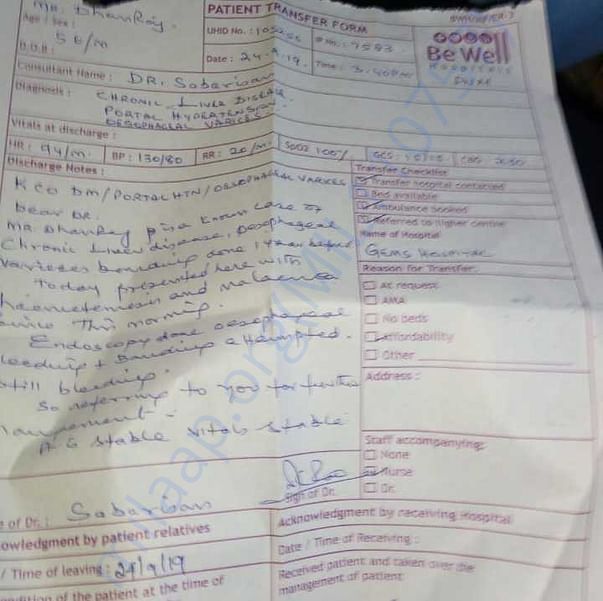 PATIENT TRANSFER FORM
Mr. Dhanroy
Age / Sex :
58/M
UHID No. : 105256
IP No. : 9583
Be Well
HOSPITALS
D.O.A :
Date : 24.9.19
Time : 3.40Pm
Consultant Name : DR. Sabarivan
Diagnosis : CHRONIC LIVER DISEASE
PORTAL HYPERTENSION
OESOPHAGEAL VARICES
Vitals at discharge :
HR : 94/m. BP : 130/80 RR : 20/m. SpO2 100% GCS : 15/15 CBG
Discharge Notes :
K/C/O DM/PORTAL HTN/OESOPHAGEAL VARICES
Dear DR.
Mr. Dhanroy is a known case of
Chronic Liver disease, Oesophageal
Varices banding done 1 year before
Today presented here with
haematemesis and malaena
since This morning.
Endoscopy done oesophageal
bleeding + Banding attempted.
still bleeding.
So referring to you for further
management.
Pt is stable vitals stable
Transfer Checklist
Transfer hospital contacted
Bed available
Ambulance booked
Referred to higher centre
Name of Hospital
GEMS HOSPITAL
Reason for Transfer
At request
AMA
No beds
Affordability
Other
Address :
Staff accompanying:
None
Nurse
Dr.
Sign of Dr.
of Dr. : Sabarivan
owledgment by patient relatives
/ Time of leaving : 24/9/19
ondition of the patient at the time of
Acknowledgment by receiving Hospital
Date / Time of Receiving :
Received patient and taken over the
management of patient